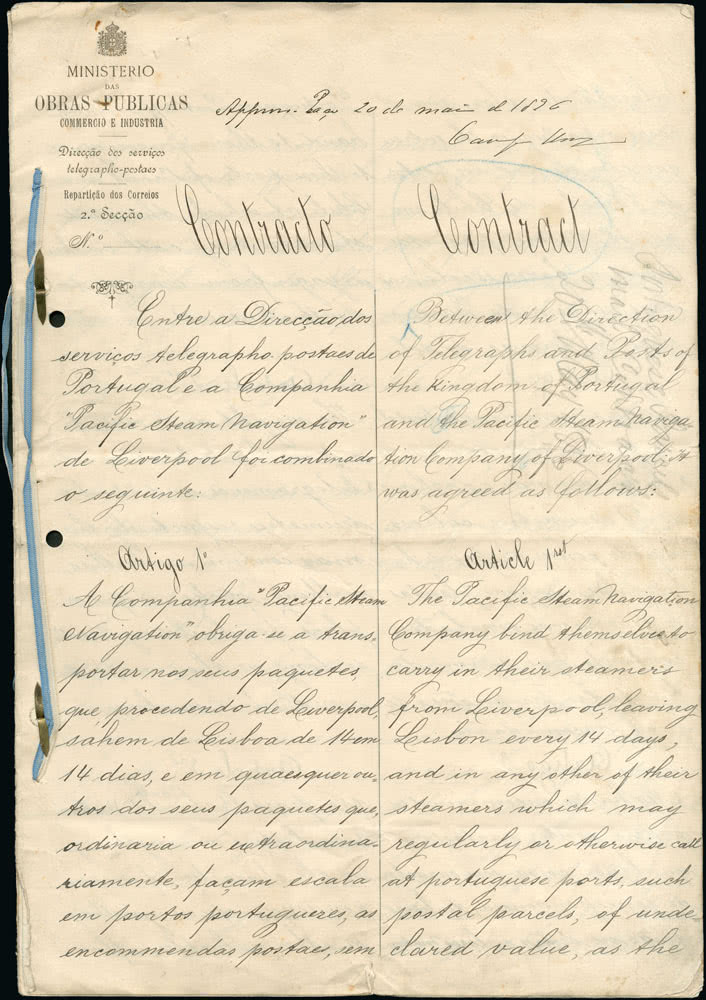 MINISTERIO
DAS
OBRAS PUBLICAS
COMMERCIO E INDUSTRIA
Direcção dos serviços
telegrapho-postaes
Repartição dos Correios
2.ª Secção
N.º
20 de maio de 1896
Contracto
Entre a Direcção dos
serviços telegrapho-postaes de
Portugal e a Companhia
"Pacific Steam Navigation"
de Liverpool foi combinado
o seguinte:
Artigo 1º
A Companhia "Pacific Steam
Navigation" obriga-se a trans-
portar nos seus paquetes,
que, procedendo de Liverpool,
sahem de Lisboa de 14 em
14 dias, e em quaesquer ou-
tros dos seus paquetes que,
ordinaria ou extraordina-
riamente, façam escala
em portos portuguezes, as
encommendas postaes, sem
Contract
Between the Direction
of Telegraphs and Posts of
the Kingdom of Portugal
and the Pacific Steam Naviga-
tion Company of Liverpool; it
was agreed as follows:
Article 1rst
The Pacific Steam Navigation
Company bind themselves to
carry in their steamers
from Liverpool, leaving
Lisbon every 14 days,
and in any other of their
steamers which may
regularly or otherwise call
at portuguese ports, such
postal parcels, of unde-
clared value, as the